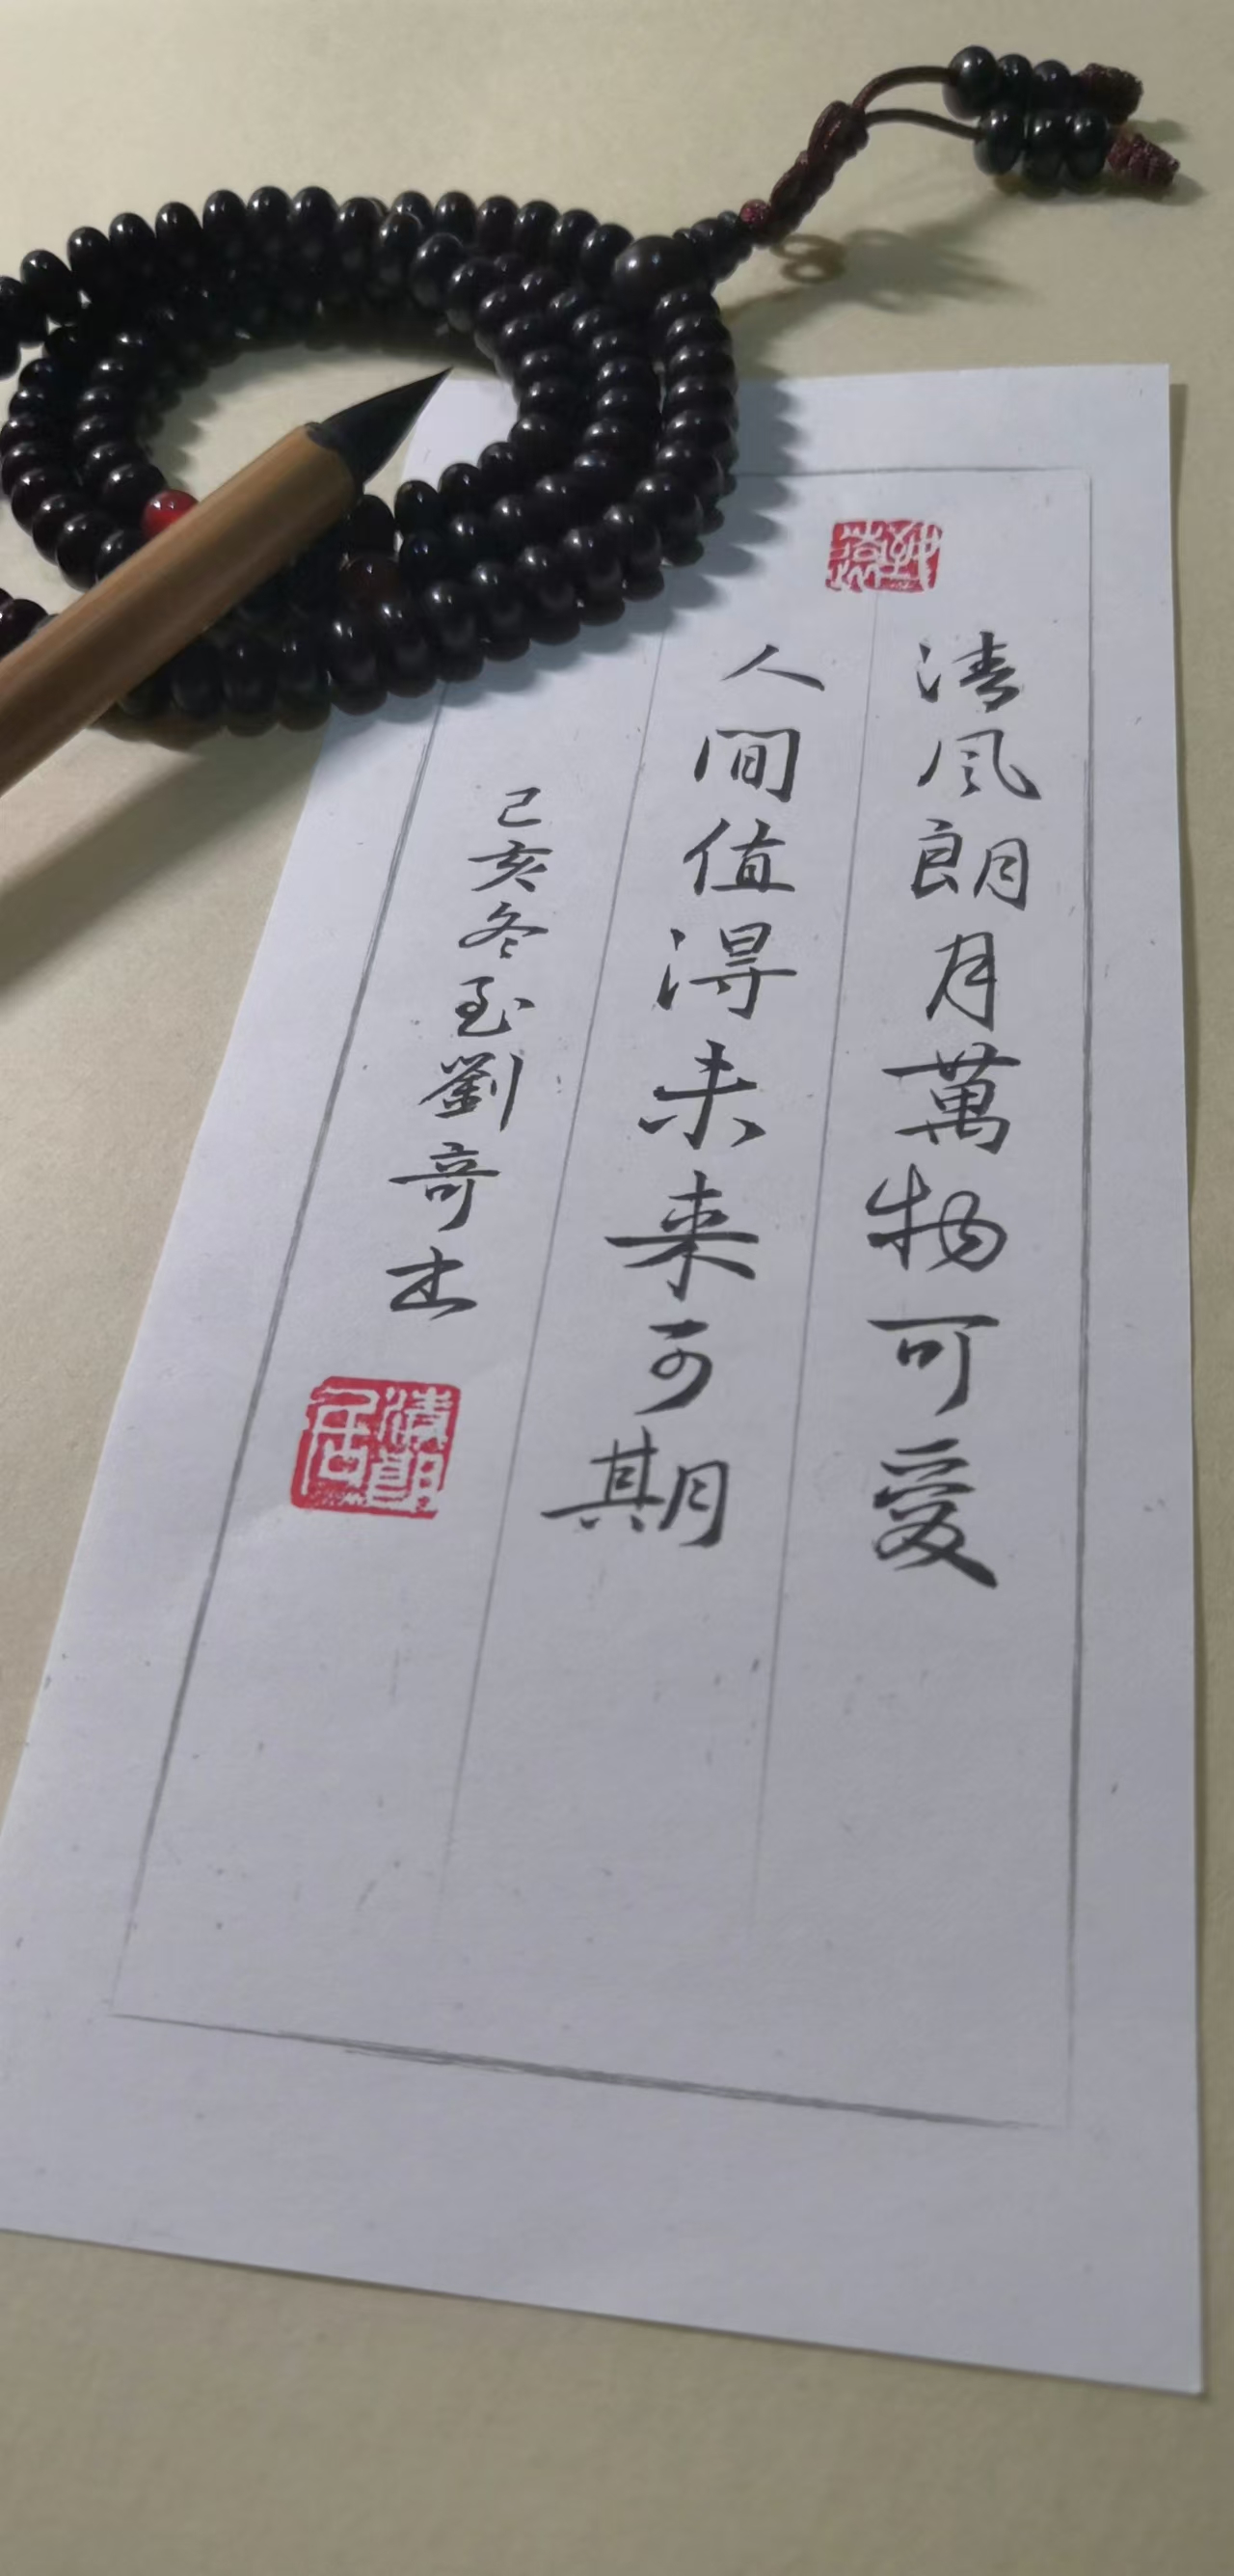 清风朗月萬物可愛
人间值得未来可期
己亥冬至劉奇书
清朗居